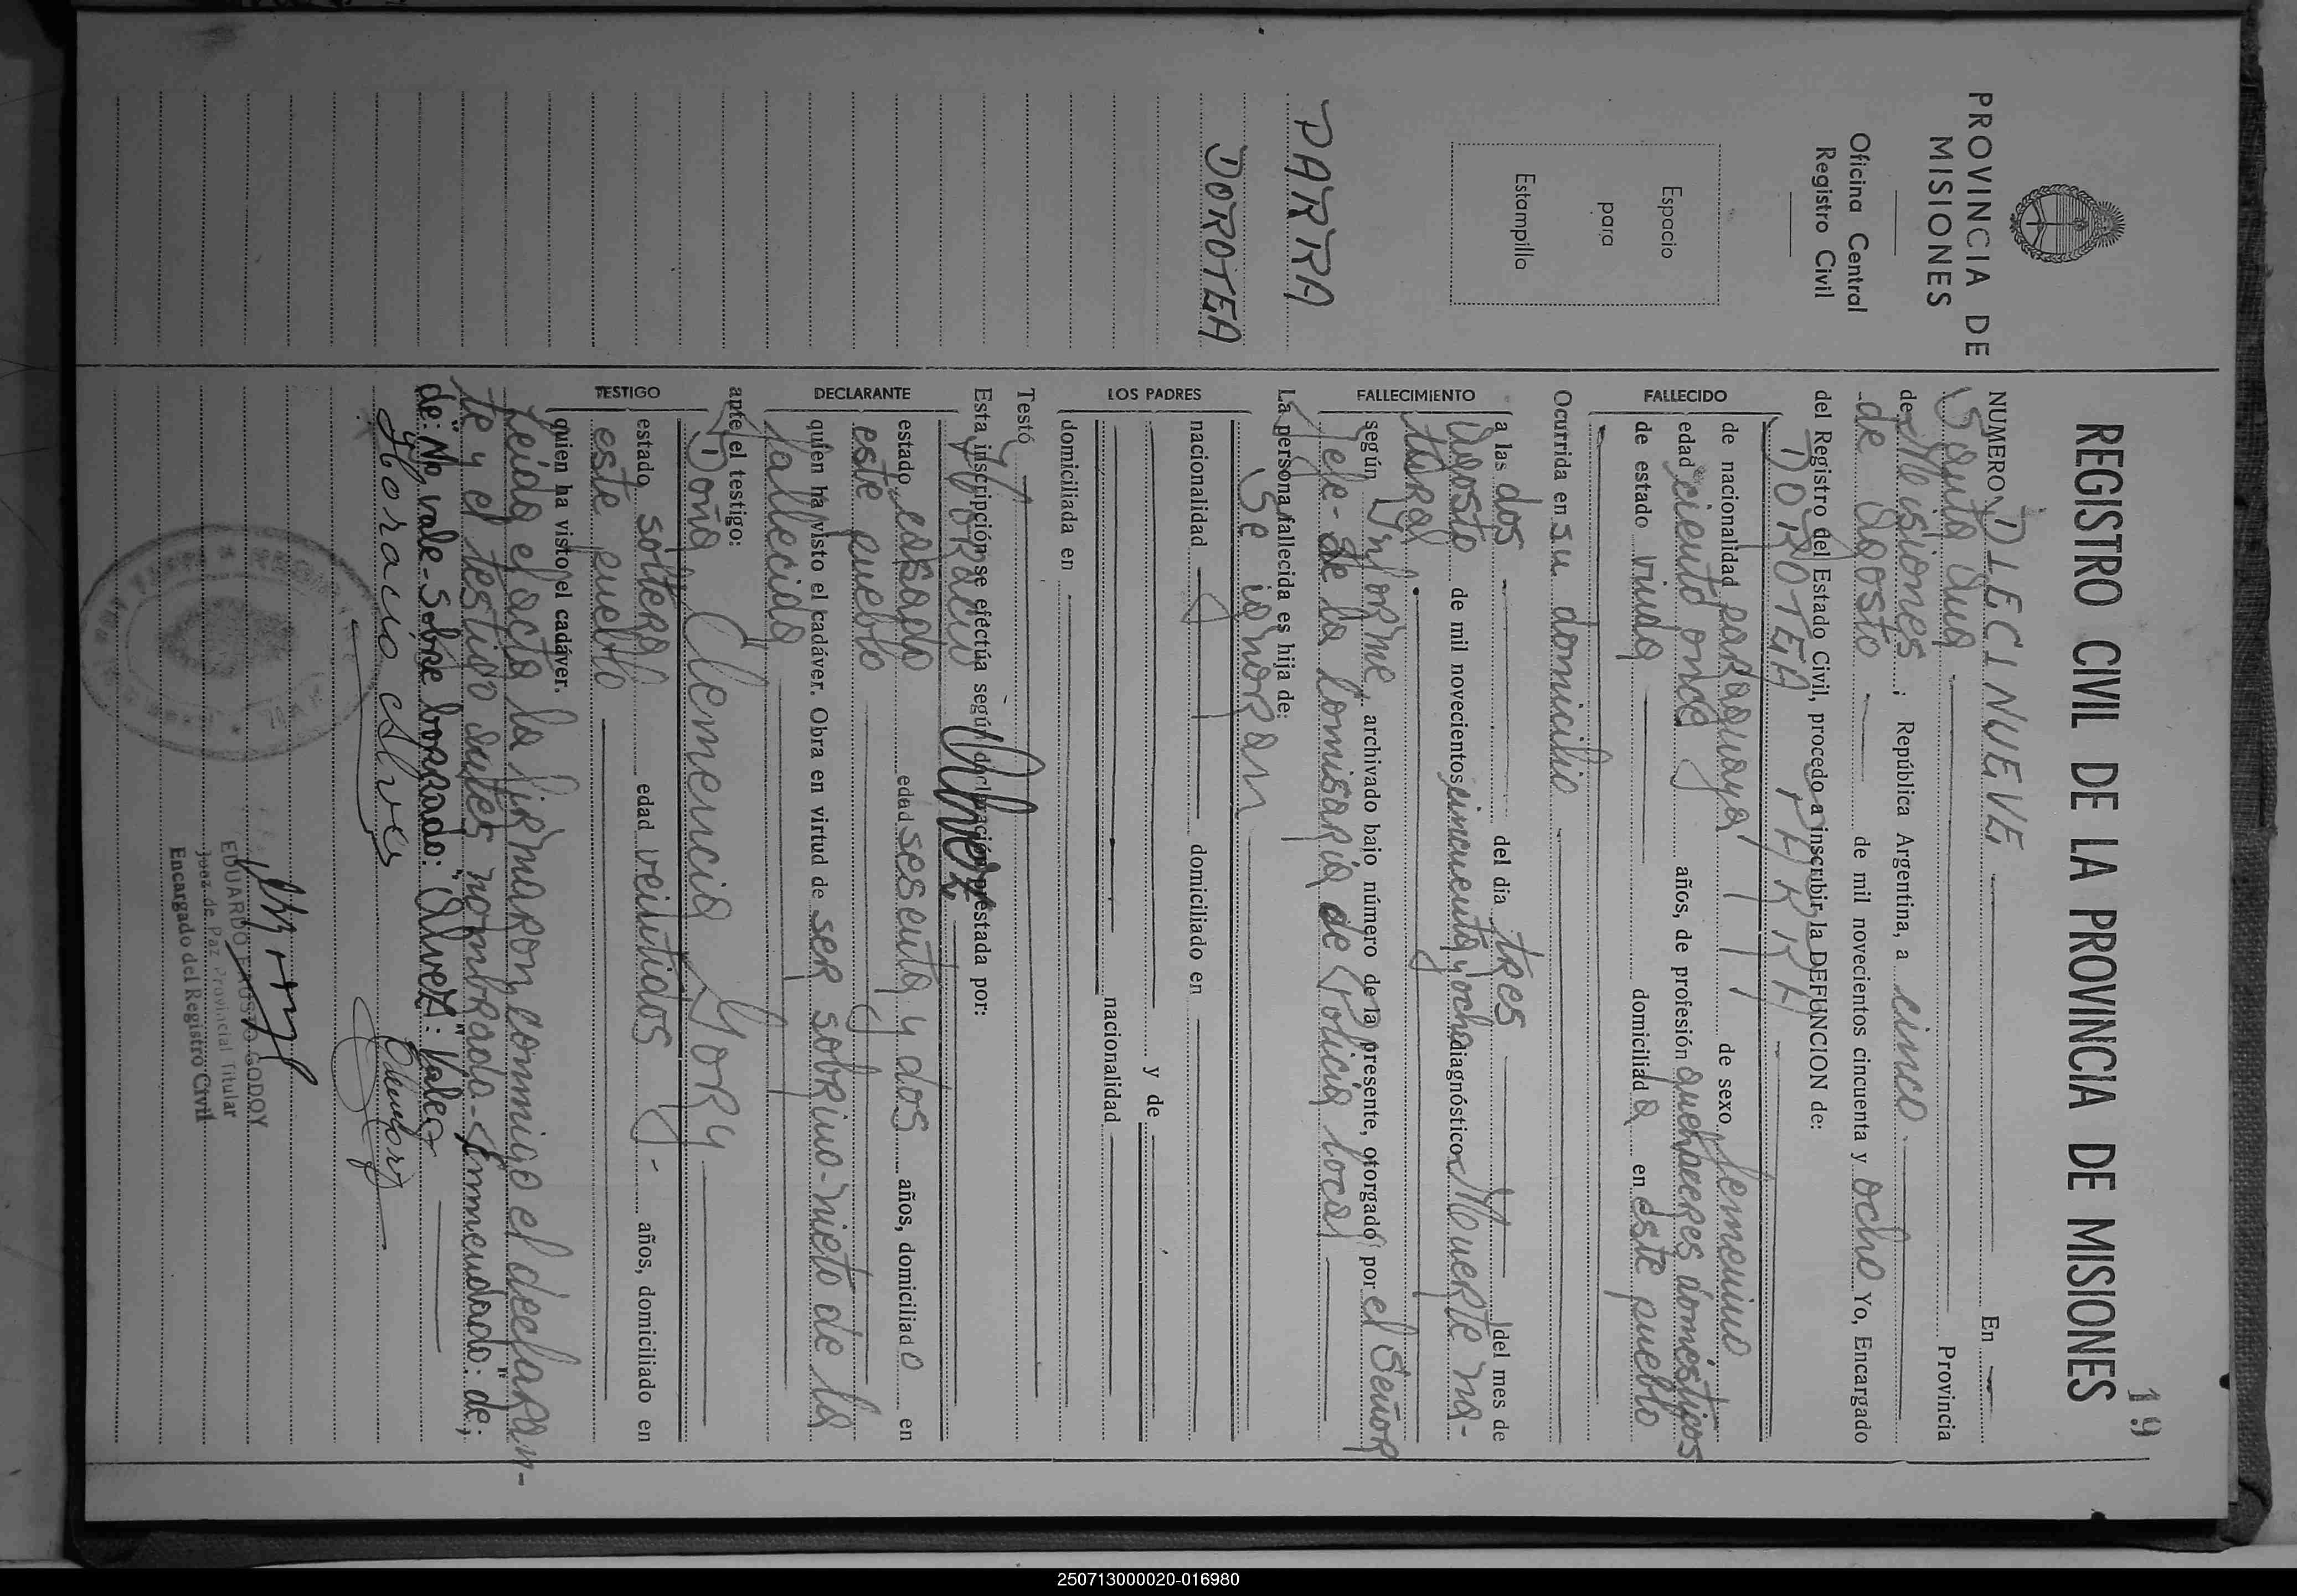 19
PROVINCIA DE
MISIONES
Oficina Central
Registro Civil
Espacio
para
Estampilla
PARRA
DOROTEA
REGISTRO CIVIL DE LA PROVINCIA DE MISIONES
NUMERO DIECINUEVE En
Santa Ana Provincia
de Misiones ; República Argentina, a cinco
de Agosto de mil novecientos cincuenta y ocho Yo, Encargado
del Registro del Estado Civil, procedo a inscribir la DEFUNCION de:
DOROTEA PARRA
FALLECIDO
de nacionalidad paraguaya de sexo femenino
edad ciento once años, de profesión quehaceres domésticos
de estado viuda domiciliada en este pueblo
Ocurrida en su domicilio
FALLECIMIENTO
a las dos del día tres del mes de
Agosto de mil novecientos cincuenta y ocho diagnóstico Muerte na-
tural
según Informe, archivado bajo número de la presente, otorgado por el Señor
Jefe de la Comisaria de Policia local
La persona fallecida es hija de:
Se ignoran
LOS PADRES
nacionalidad domiciliado en
y de
nacionalidad
domiciliada en
Testó
Esta inscripción se efectúa según declaración prestada por:
Horacio Alvez
DECLARANTE
estado casado edad sesenta y dos años, domiciliado en
este pueblo
quien ha visto el cadáver. Obra en virtud de ser sobrino-nieto de la
fallecida
ante el testigo:
Doña Clemencia Gory
TESTIGO
estado soltera edad veintidos años, domiciliado en
este pueblo
quien ha visto el cadáver.
Leida el acta la firmaron conmigo el declaran-
te y el testigo antes nombrado- Enmendado: "de;
de: "No vale- Sobre borrado: "Alvez": Vale
Horacio Alves
EDUARDO FAUSTO GODOY
Juez de Paz Provincial Titular
Encargado del Registro Civil
250713000020-016980